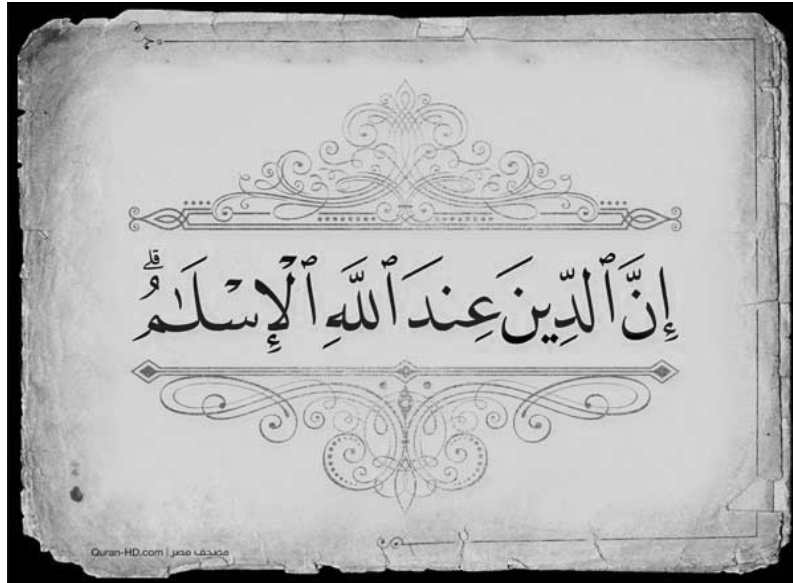 إِنَّ ٱلدِّينَ عِندَ ٱللَّهِ ٱلْإِسْلَـٰمُ ۗ
Quran-HD.com | مصحف مصر